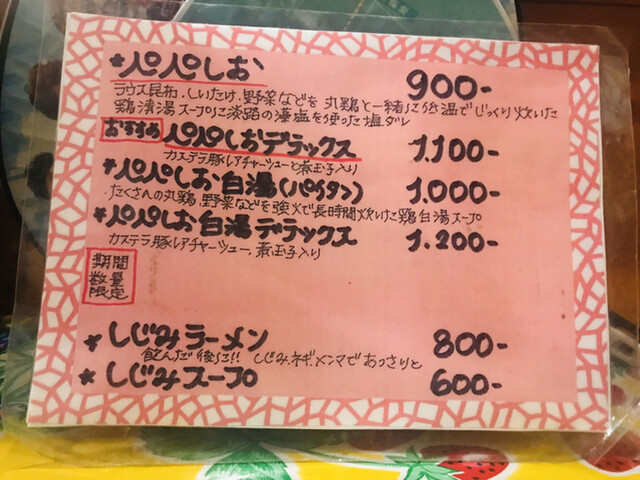 *ぺぺしお 900-
ラウス昆布、しいたけ、野菜などを丸鶏と一緒に低温でじっくり炊いた
鶏清湯スープに淡路の藻塩を使った塩ダレ
おすすめ ぺぺしおデラックス 1.100-
カステラ豚レアチャーシューと煮玉子入り
*ぺぺしお白湯(パイタン) 1.000-
たくさんの丸鶏、野菜などを強火で長時間炊いた鶏白湯スープ
*ぺぺしお白湯デラックス 1.200-
カステラ豚レアチャーシュー、煮玉子入り
期間
数量
限定
*しじみラーメン 800-
飲んだ後に!! しじみ、ネギ、メンマであっさりと
*しじみスープ 600-